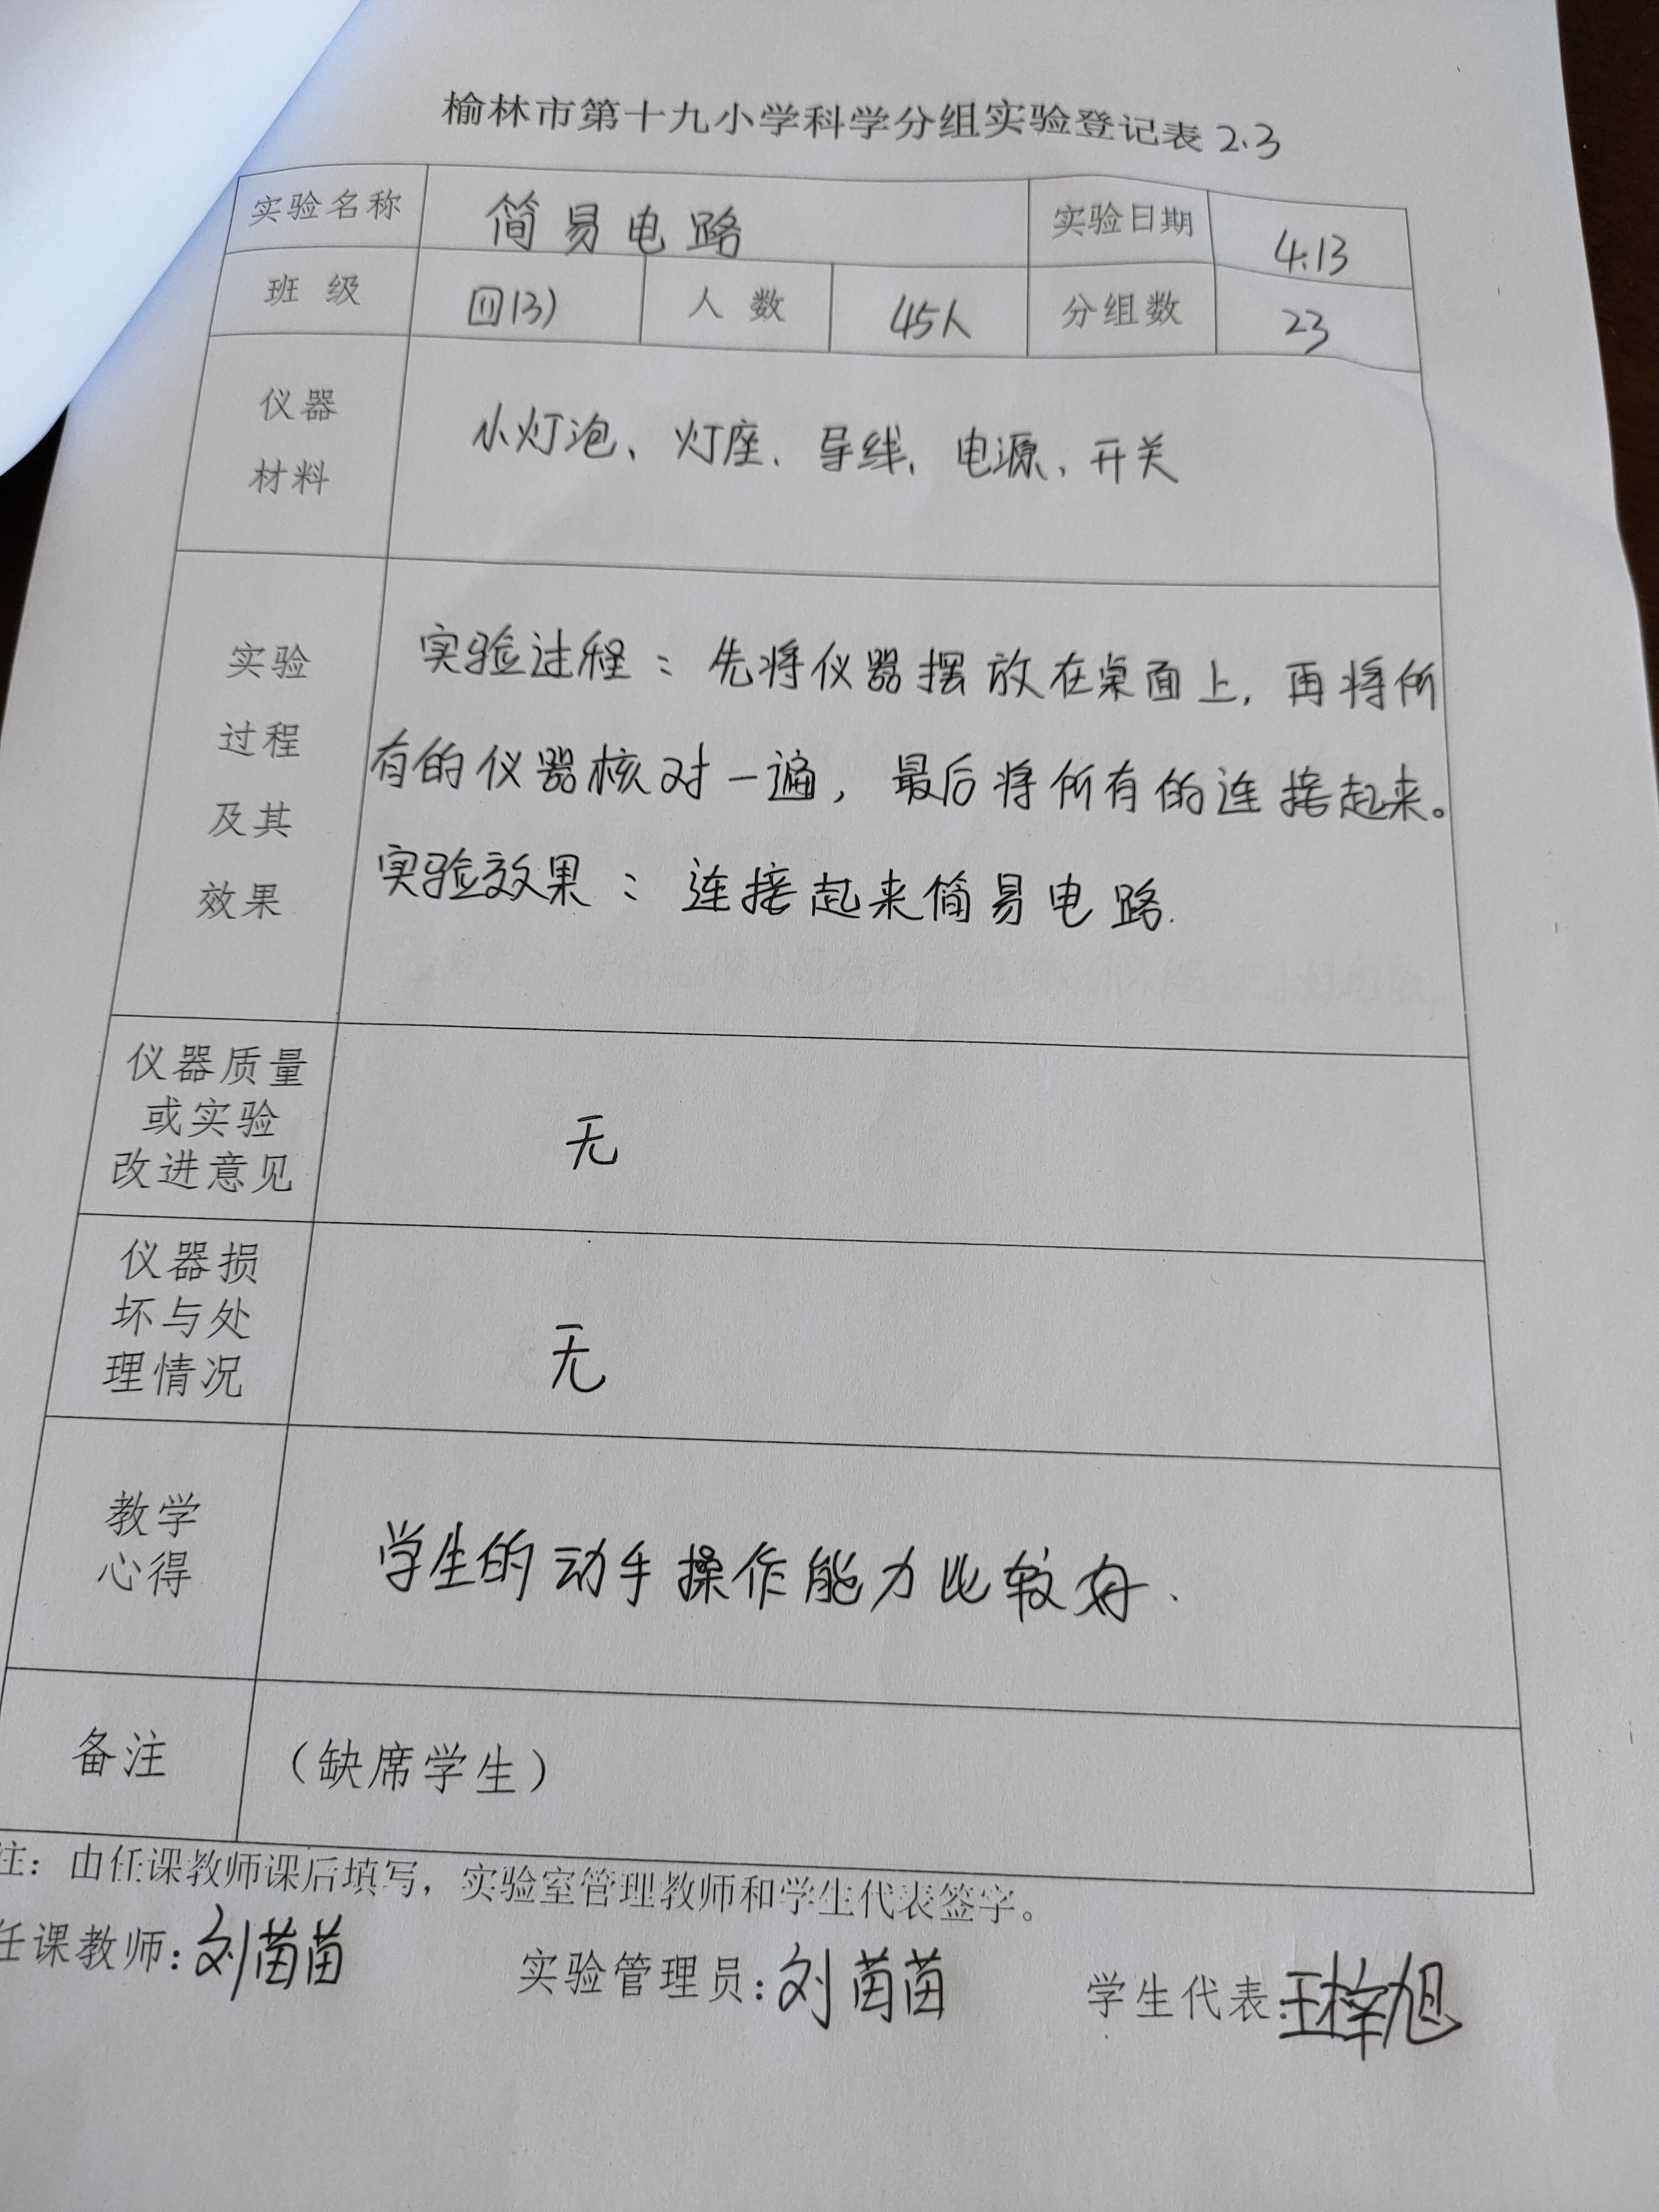 榆林市第十九小学科学分组实验登记表 2.3
实验名称 简易电路 实验日期 4.13
班 级 四(3) 人 数 45人 分组数 23
仪器
材料
小灯泡、灯座、导线、电源、开关
实验
过程
及其
效果
实验过程：先将仪器摆放在桌面上，再将所
有的仪器核对一遍，最后将所有的连接起来。
实验效果：连接起来简易电路.
仪器质量
或实验
改进意见
无
仪器损
坏与处
理情况
无
教学
心得
学生的动手操作能力比较好.
备注 （缺席学生）
注：由任课教师课后填写，实验室管理教师和学生代表签字。
任课教师：刘苗苗 实验管理员：刘苗苗 学生代表：王梓旭